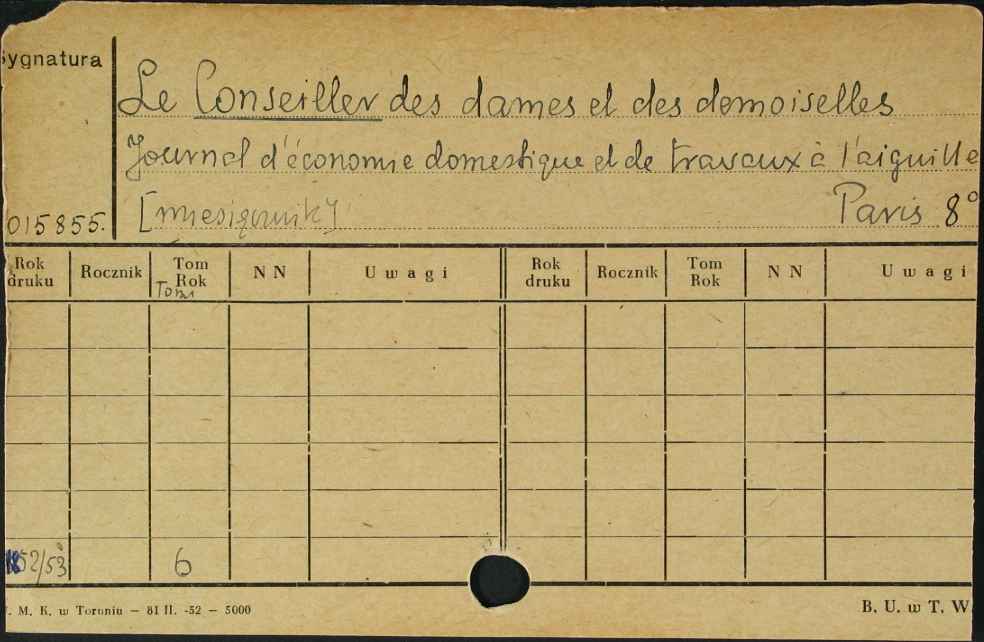 Sygnatura
Le Conseiller des dames et des demoiselles
Journal d'économie domestique et de travaux à l'aiguille
[miesięcznik]
Paris 8°
015855.
Rok druku Rocznik Tom Rok NN Uwagi Rok druku Rocznik Tom Rok NN Uwagi
Tom
1852/53 6
. M. K. w Toruniu — 81 II. -52 — 5000
B. U. w T. W